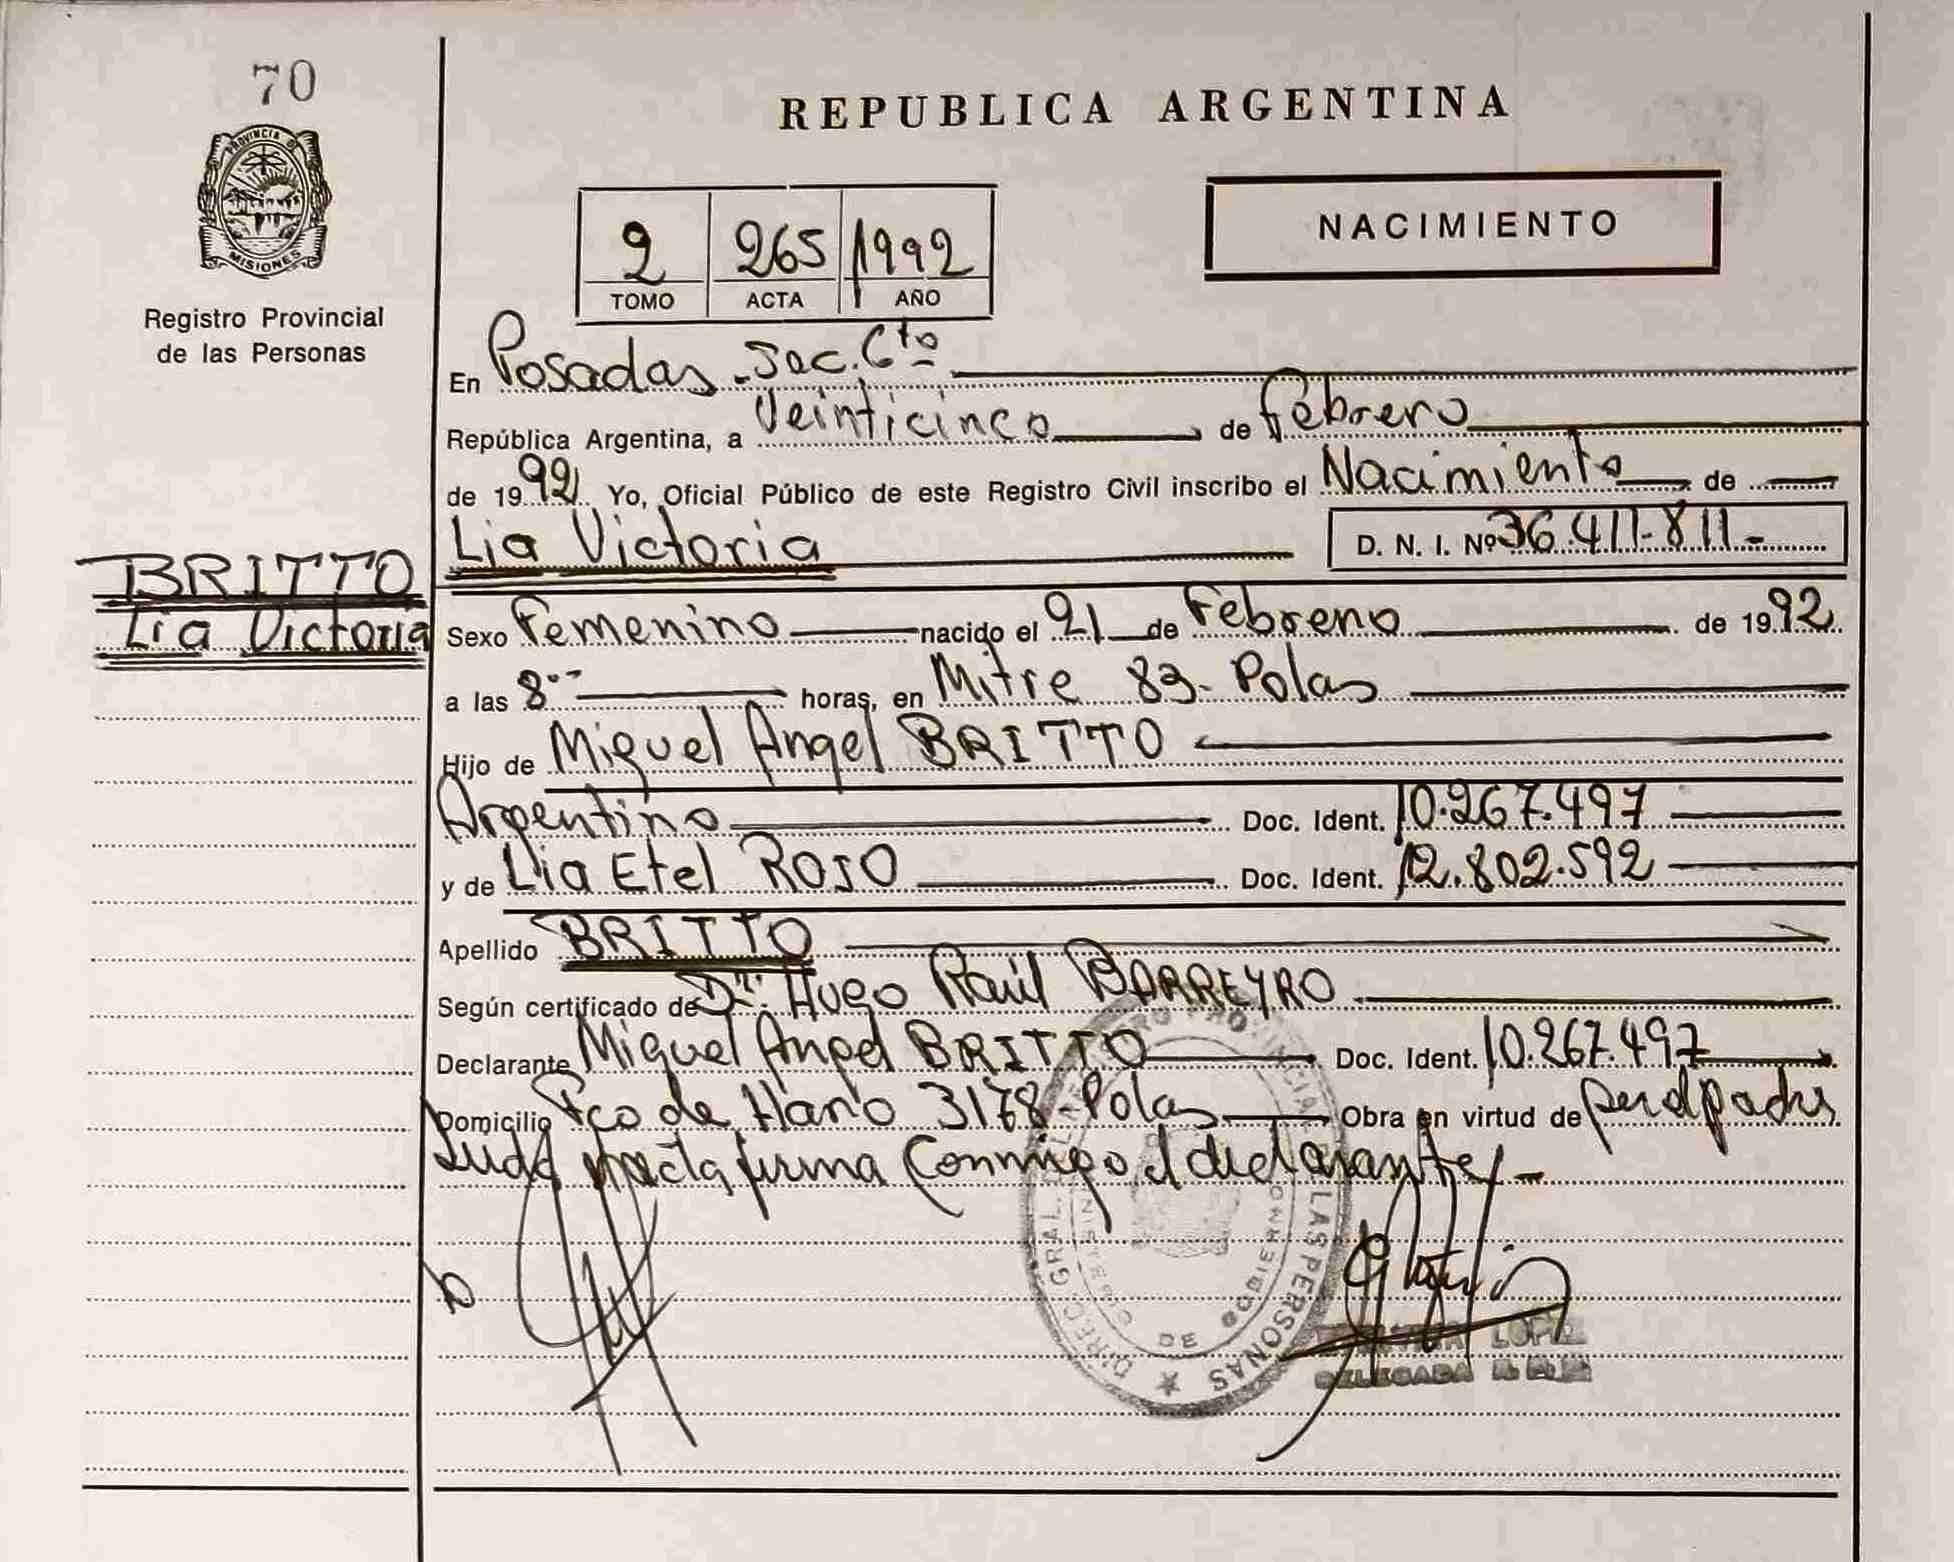 70
PROVINCIA DE
MISIONES
Registro Provincial
de las Personas
REPUBLICA ARGENTINA
NACIMIENTO
2 265 1992
TOMO ACTA AÑO
En Posadas - Sec. 6ta
República Argentina, a Veinticinco de Febrero
de 1992 Yo, Oficial Público de este Registro Civil inscribo el Nacimiento de
Lia Victoria D. N. I. Nº 36.411.811-
BRITTO
Lia Victoria
Sexo Femenino nacido el 21 de Febrero de 1992
a las 8 horas, en Mitre 83 - Pdas
Hijo de Miguel Angel BRITTO
Argentino Doc. Ident. 10.267.497
y de Lia Etel ROJO Doc. Ident. 12.802.592
Apellido BRITTO
Según certificado de Dr. Hugo Raúl BARREYRO
Declarante Miguel Angel BRITTO Doc. Ident. 10.267.497
Domicilio Fco de Haro 3178 - Pdas Obra en virtud de
acta firma Conmigo el declarante -
DIREC. GRAL. DEL REGISTRO PROVINCIAL DE LAS PERSONAS
DE GOBIERNO
LOPEZ
DELEGADA